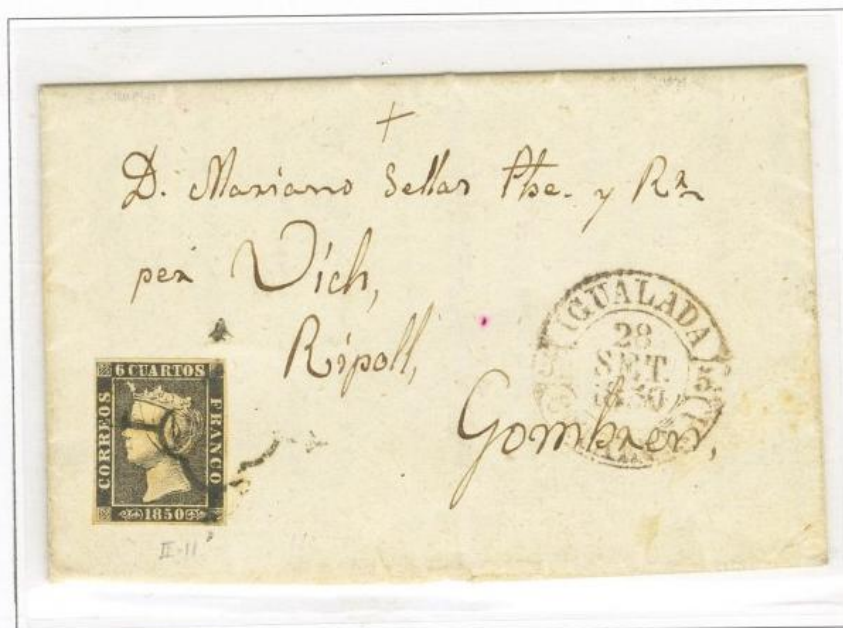 +
D. Mariano Sellas Pbe. y Rr
per Vich,
Ripoll,
Gombren,
IGUALADA
28
SET.
1850
6 CUARTOS
CORREOS
FRANCO
1850
II-11